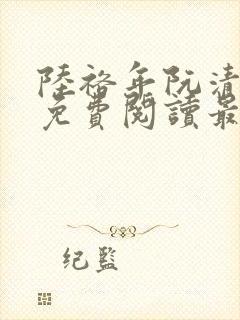 陸裕年阮清
免費閱讀最
纪監